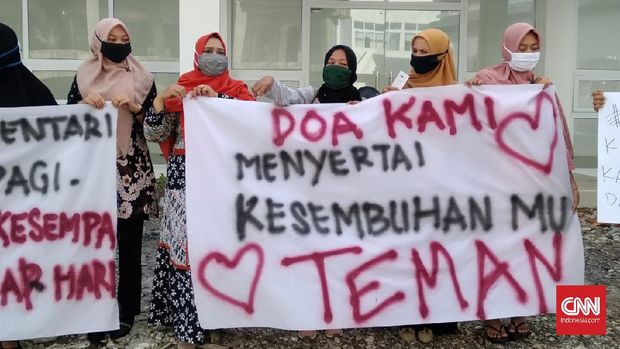 ENTARI
PAGI.
KESEMPA
AP HARI
DOA KAMI
MENYERTAI
KESEMBUHAN MU
TEMAN
#
K
KA
DA
CNN
Indonesia.com